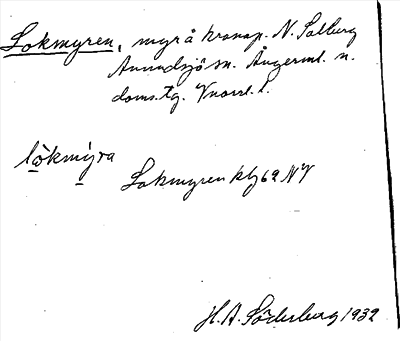 Lokmyren, myr å kronop. N. Solberg
Anundsjö sn. Ångerml. n.
doms.tg. Vnorrl. l.
lo̱kmy̱ra
Lokmyren kbl 62 NV
H.A. Söderberg 1932